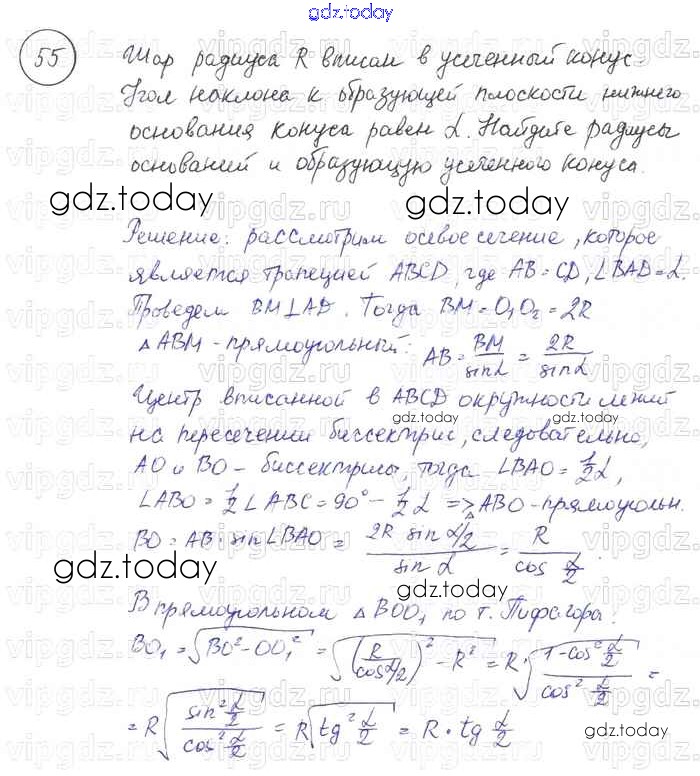 gdz.today
55
Шар радиуса R вписан в усеченный конус.
Угол наклона к образующей плоскости нижнего
основания конуса равен α. Найдите радиусы
оснований и образующую усеченного конуса.
gdz.today gdz.today
Решение: рассмотрим осевое сечение, которое
является трапецией ABCD, где AB = CD, ∠BAD = α.
Проведем BM⊥AD. Тогда BM = O₁O₂ = 2R
△ABM - прямоугольный: AB = BM/sinα = 2R/sinα
Центр вписанной в ABCD окружности лежит
gdz.today gdz.today
на пересечении биссектрис, следовательно,
AO и BO - биссектрисы, тогда ∠BAO = 1/2 α,
∠ABO = 1/2 ∠ABC = 90° - 1/2 α => △ABO - прямоугольн.
BO = AB · sin∠BAO = 2R sin α/2 / sin α = R / cos α/2 .
gdz.today gdz.today
В прямоугольном △BOO₁ по т. Пифагора:
BO₁ = √(BO² - OO₁²) = √((R/cos α/2)² - R²) = R · √((1 - cos² α/2)/(cos² α/2)) =
= R √(sin² α/2 / cos² α/2) = R √(tg² α/2) = R · tg α/2
gdz.today
vipgdz.ru